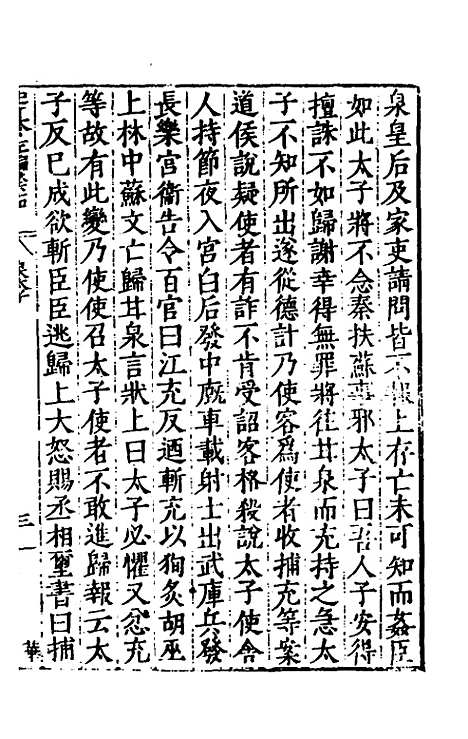 泉皇后及家吏請問皆不報上存亡未可知而姦臣
如此太子將不念秦扶蘇事邪太子曰吾人子安得
擅誅不如歸謝幸得無罪將往甘泉而充持之急太
子不知所出遂從德計乃使客爲使者收捕充等案
道侯說疑使者有詐不肯受詔客格殺說太子使舍
人持節夜入宫白后發中廐車載射士出武庫兵發
長樂宫衞告令百官曰江充反廼斬充以狥炙胡巫
上林中蘇文亡歸甘泉言狀上曰太子必懼又忿充
等故有此變乃使使召太子使者不敢進歸報云太
子反已成欲斬臣臣逃歸上大怒賜丞相璽書曰捕